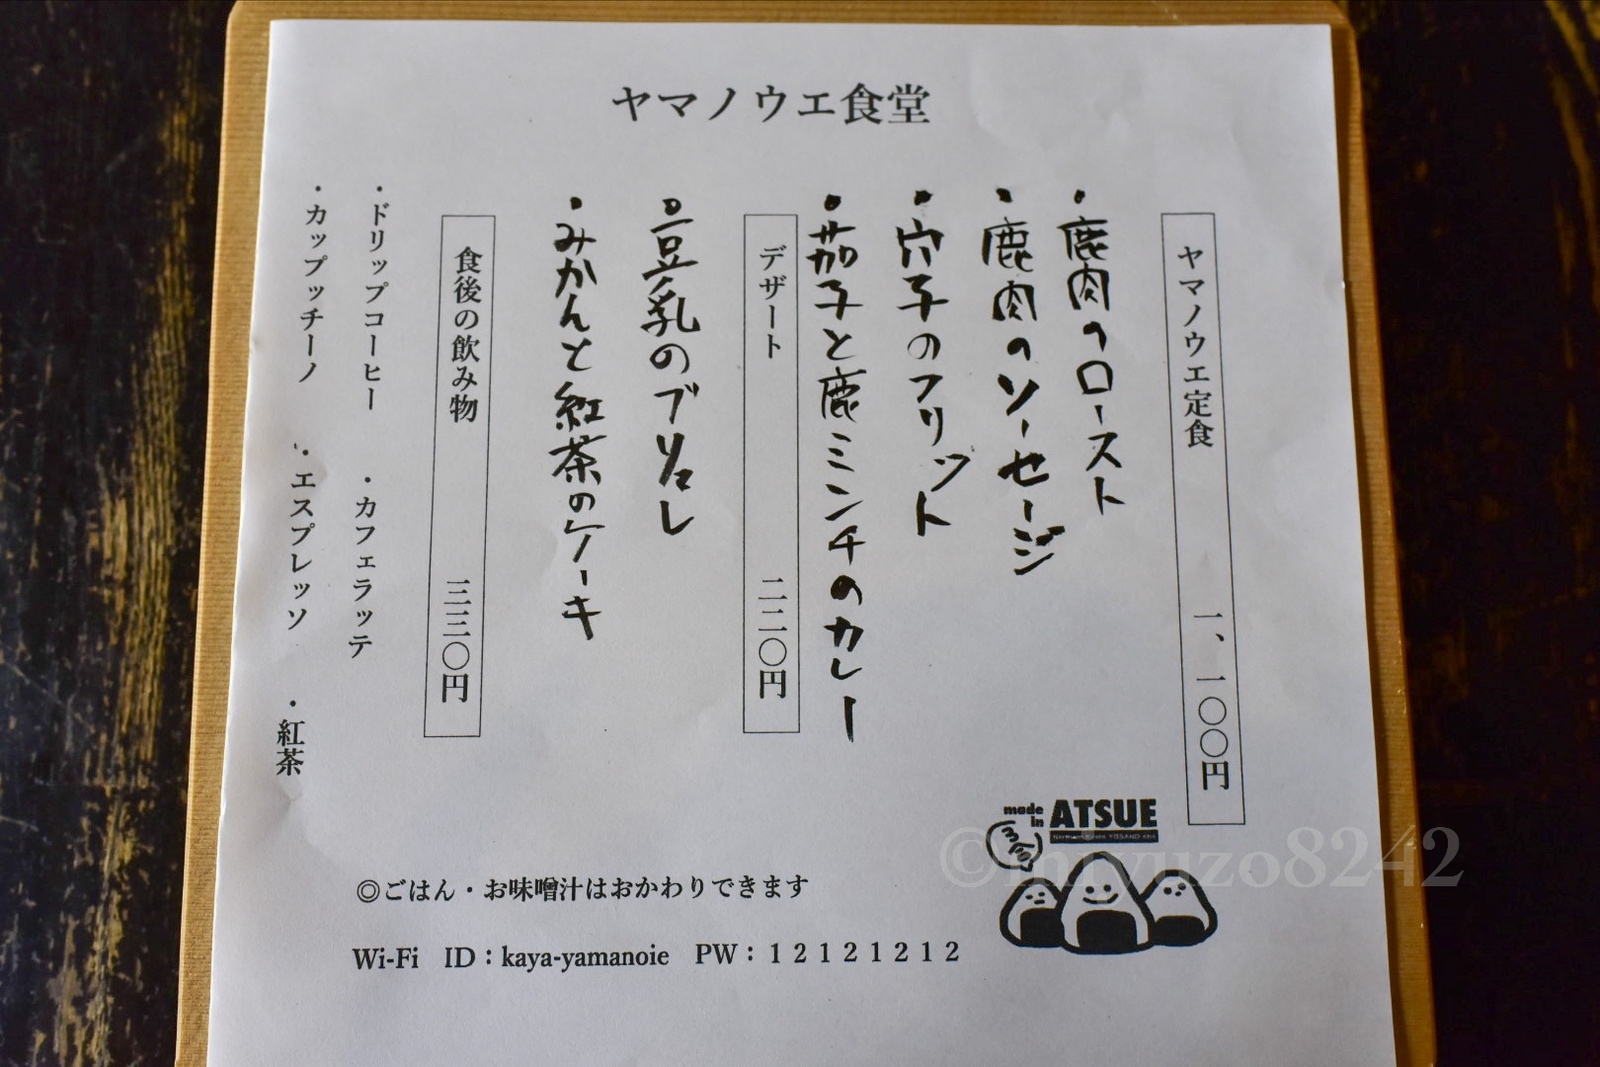 ヤマノウエ食堂
ヤマノウエ定食 一、一〇〇円
・鹿肉のロースト
・鹿肉のソーセージ
・穴子のフリット
・茄子と鹿ミンチのカレー
デザート 二二〇円
・豆乳のブリュレ
・みかんと紅茶のケーキ
食後の飲み物 三三〇円
・ドリップコーヒー ・カフェラッテ
・カップッチーノ ・エスプレッソ ・紅茶
made in ATSUE
◎ごはん・お味噌汁はおかわりできます
Wi-Fi ID：kaya-yamanoie PW：12121212
©miyuzo8242